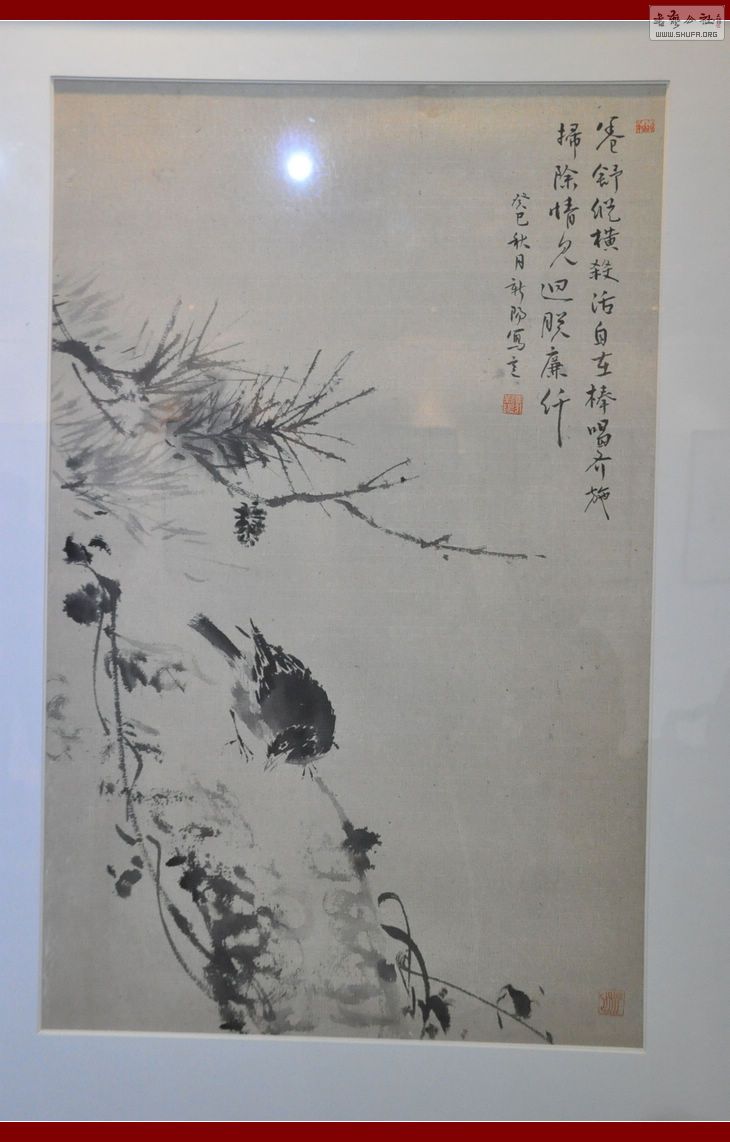 卷舒縱橫殺活自在棒喝齐施
掃除情見迥脱廉纤
癸巳秋月新陽寫意
書藝公社
WWW.SHUFA.ORG